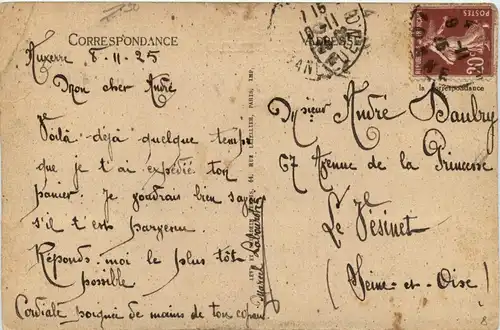 CORRESPONDANCE
Auxerre 8-11-25
Mon cher André
Voilà déjà quelque temps
que je t'ai expédié ton
panier. Je voudrais bien savoir
s'il t'est parvenu.
Réponds-moi le plus tôt
possible
Cordiale poignée de mains de ton copain
Marcel
ADRESSE
la correspondance
POSTES
20
Monsieur André Baubry
67 Avenue de la Princesse
Le Vésinet
(Seine-et-Oise)